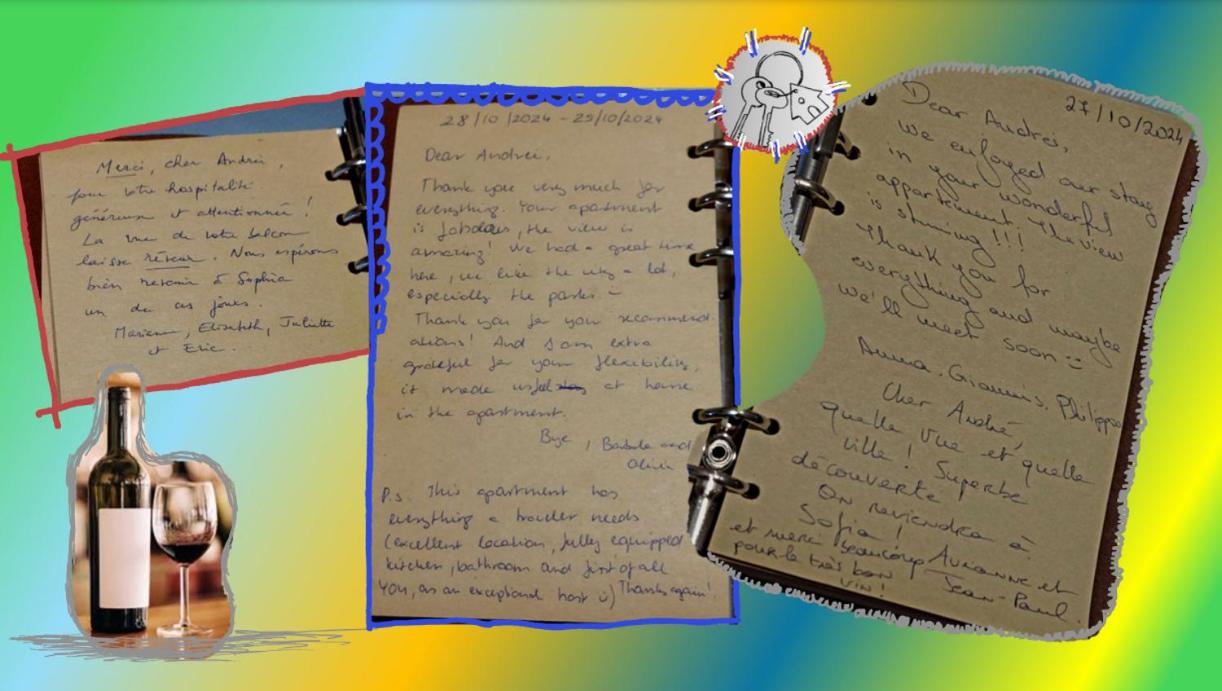 Merci, cher Andrei,
pour votre hospitalité
généreuse et attentionnée !
La vue de votre balcon
laisse rêveur. Nous espérons
bien revenir à Sophia
un de ces jours.
Marianne, Elisabeth, Juliette
et Eric.
28/10/2024 - 29/10/2024
Dear Andrei,
Thank you very much for
everything. Your apartment
is fabulous, the view is
amazing! We had a great time
here, we like the city a lot,
especially the parks :-)
Thank you for your recommend
ations! And I am extra
grateful for your flexibility,
it made us feel at home
in the apartment.
Bye, and
P.s. This apartment has
everything a traveler needs
(excellent location, fully equipped
kitchen, bathroom and first of all
You, as an exceptional host :) Thanks again!
27/10/2024
Dear Andrei,
We enjoyed our stay
in your wonderful
appartement. The view
is stunning!!!
Thank you for
everything and maybe
we'll meet soon :)
Anna, Giannis, Philippos
Cher André,
quelle vue et quelle
ville ! Superbe
découverte
On reviendra à
Sofia !
et merci beaucoup
pour le très bon
vin !
Jean-Paul